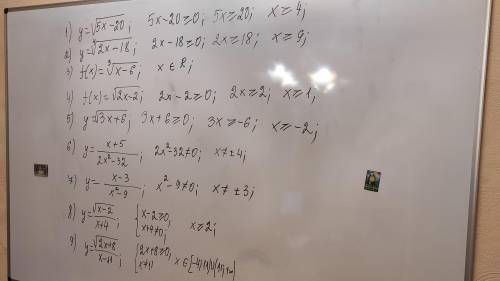 1) y=√5x-20; 5x-20≥0; 5x≥20; x≥4;
2) y=√2x-18; 2x-18≥0; 2x≥18; x≥9;
3) f(x)=∛x-6; x∈R;
4) f(x)=√2x-2; 2x-2≥0; 2x≥2; x≥1;
5) y=√3x+6; 3x+6≥0; 3x≥-6; x≥-2;
6) y=(x+5)/(2x²-32); 2x²-32≠0; x≠±4;
7) y=(x-3)/(x²-9); x²-9≠0; x≠±3;
8) y=√x-2/(x+4); {x-2≥0, x+4≠0; x≥2;
9) y=√2x+8/(x-11); {2x+8≥0; x≠11 x∈[-4;11)∪(11;+∞)